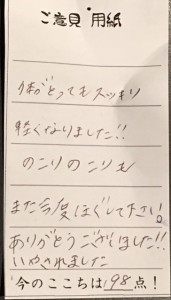 ご意見・用紙
体がとってもスッキリ
軽くなりました!!
のこりのこりも
また今度ほぐして下さい。
ありがとうございました!!
いやされました
今のここちは198点！